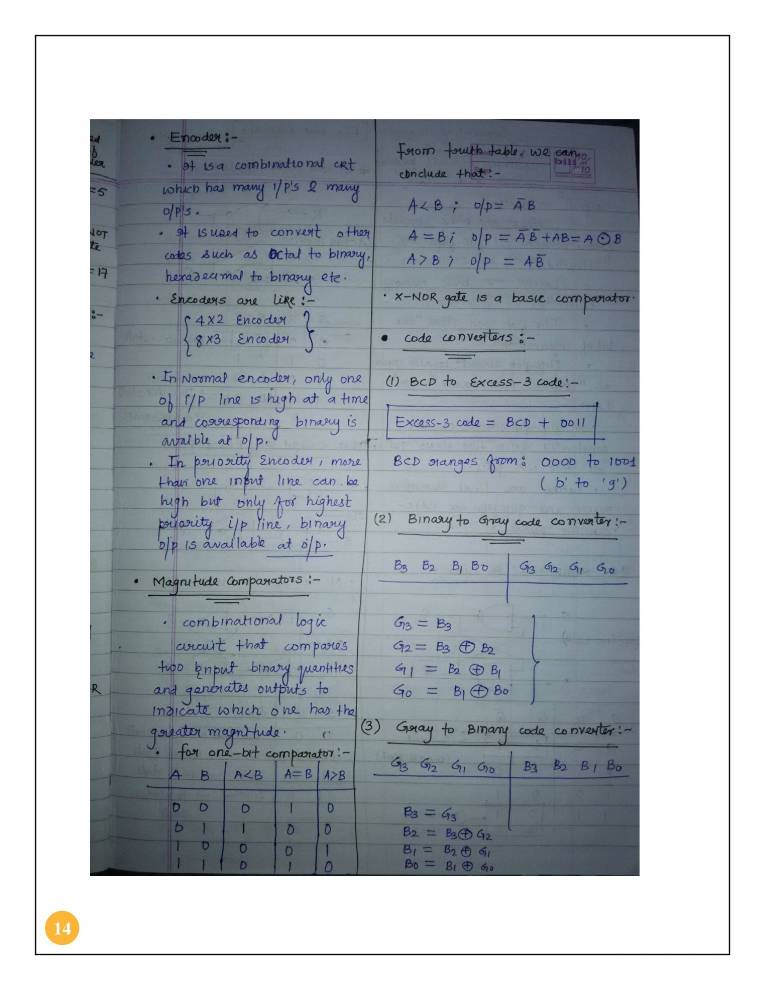 • Encoder:-
• It is a combinational CRT
which has many I/P's & many
O/P's.
• It is used to convert other
codes such as Octal to binary,
hexadecimal to binary etc.
• Encoders are like:-
4x2 Encoder
8x3 Encoder
• In Normal encoder, only one
of I/P line is high at a time
and corresponding binary is
avaible at O/P.
• In priority Encoder, more
than one input line can be
high but only for highest
priority i/p line, binary
O/P is available at O/P.
• Magnitude Comparators:-
• combinational logic
circuit that compares
two input binary quantities
and generates outputs to
indicate which one has the
greater magnitude.
• for one-bit comparator:-
A B A<B A=B A>B
0 0 0 1 0
0 1 1 0 0
1 0 0 0 1
1 1 0 1 0
From truth table, we can
conclude that:-
A<B ; O/P = A̅B
A=B ; O/P = A̅B̅+AB=A⊙B
A>B ; O/P = AB̅
• X-NOR gate is a basic comparator.
• code converters:-
(1) BCD to Excess-3 code:-
Excess-3 code = BCD + 0011
BCD ranges from: 0000 to 1001
('0' to '9')
(2) Binary to Gray code converter:-
B3 B2 B1 B0 G3 G2 G1 G0
G3 = B3
G2 = B3 ⊕ B2
G1 = B2 ⊕ B1
G0 = B1 ⊕ B0
(3) Gray to Binary code converter:-
G3 G2 G1 G0 B3 B2 B1 B0
B3 = G3
B2 = B3⊕G2
B1 = B2 ⊕ G1
B0 = B1 ⊕ G0
14